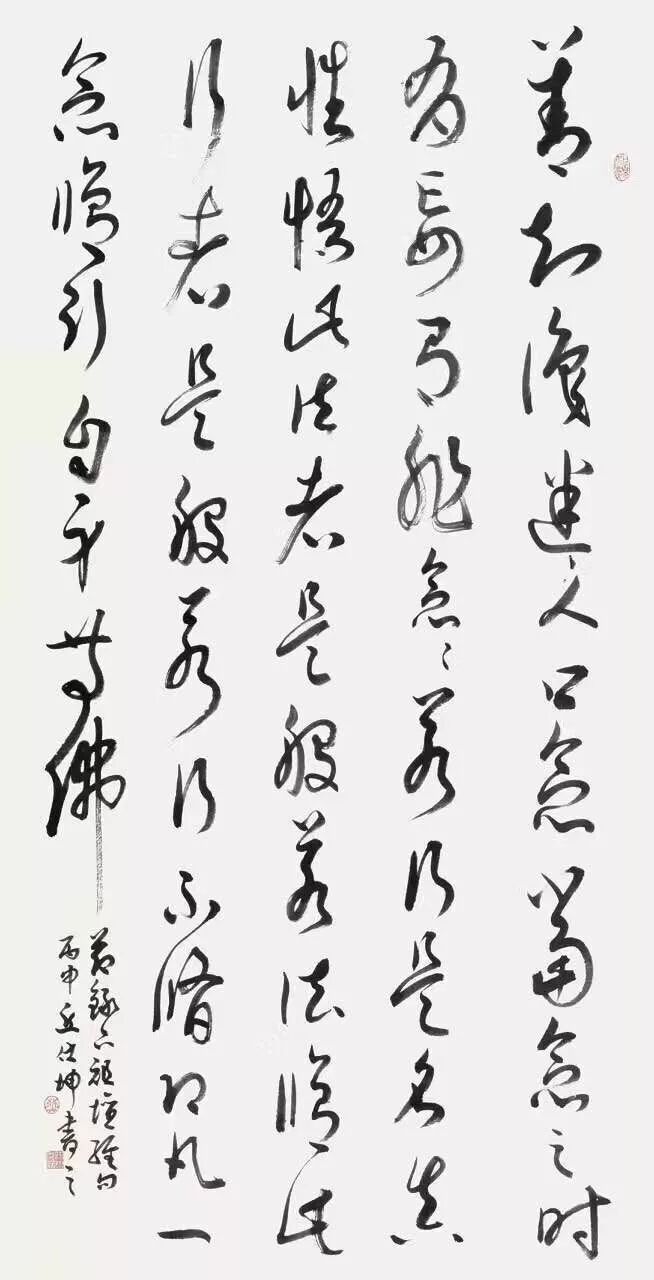 善知識迷人口念當念之時
有妄有非念々若行是名真
性悟此法者是般若法修此
行者是般若行不修即凡一
念修行自身等佛
節錄六祖壇經句
丙申丘仕坤書之